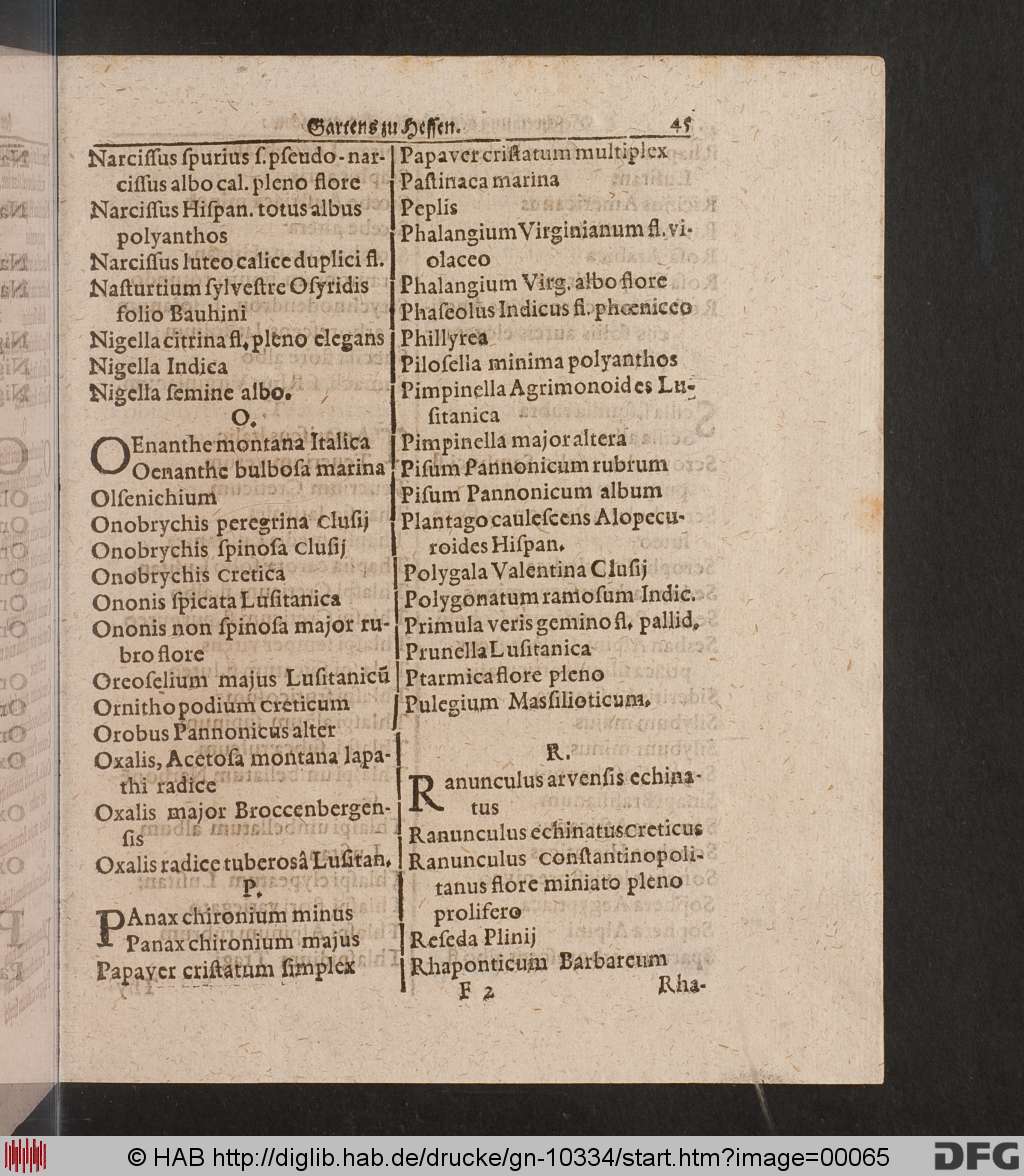 Gartens zu Hessen. 45
Narciſſus ſpurius ſ. pſeudo-nar-
ciſſus albo cal. pleno flore
Narciſſus Hiſpan. totus albus
polyanthos
Narciſſus luteo calice duplici fl.
Naſturtium ſylveſtre Oſyridis
folio Bauhini
Nigella citrina fl. pleno elegans
Nigella Indica
Nigella ſemine albo.
O.
OEnanthe montana Italica
Oenanthe bulboſa marina
Olſenichium
Onobrychis peregrina Cluſij
Onobrychis ſpinoſa Cluſij
Onobrychis Cretica
Ononis ſpicata Luſitanica
Ononis non ſpinoſa major ru-
bro flore
Oreoſelium majus Luſitanicū
Ornithopodium Creticum
Orobus Pannonicus alter
Oxalis, Acetoſa montana lapa-
thi radice
Oxalis major Broccenbergen-
ſis
Oxalis radice tuberosâ Luſitan.
P.
PAnax chironium minus
Panax chironium majus
Papaver criſtatum ſimplex
Papaver criſtatum multiplex
Paſtinaca marina
Peplis
Phalangium Virginianum fl. vi-
olaceo
Phalangium Virg. albo flore
Phaſeolus Indicus fl. phœniceo
Phillyrea
Piloſella minima polyanthos
Pimpinella Agrimonoides Lu-
ſitanica
Pimpinella major altera
Piſum Pannonicum rubrum
Piſum Pannonicum album
Plantago cauleſcens Alopecu-
roides Hiſpan.
Polygala Valentina Cluſij
Polygonatum ramoſum Indic.
Primula veris gemino fl. pallid.
Prunella Luſitanica
Ptarmica flore pleno
Pulegium Masſilioticum.
R.
Ranunculus arvenſis echina-
tus
Ranunculus echinatus Creticus
Ranunculus Conſtantinopoli-
tanus flore miniato pleno
prolifero
Reſeda Plinij
Rhaponticum Barbareum
F 2 Rha-
© HAB http://diglib.hab.de/drucke/gn-10334/start.htm?image=00065
DFG